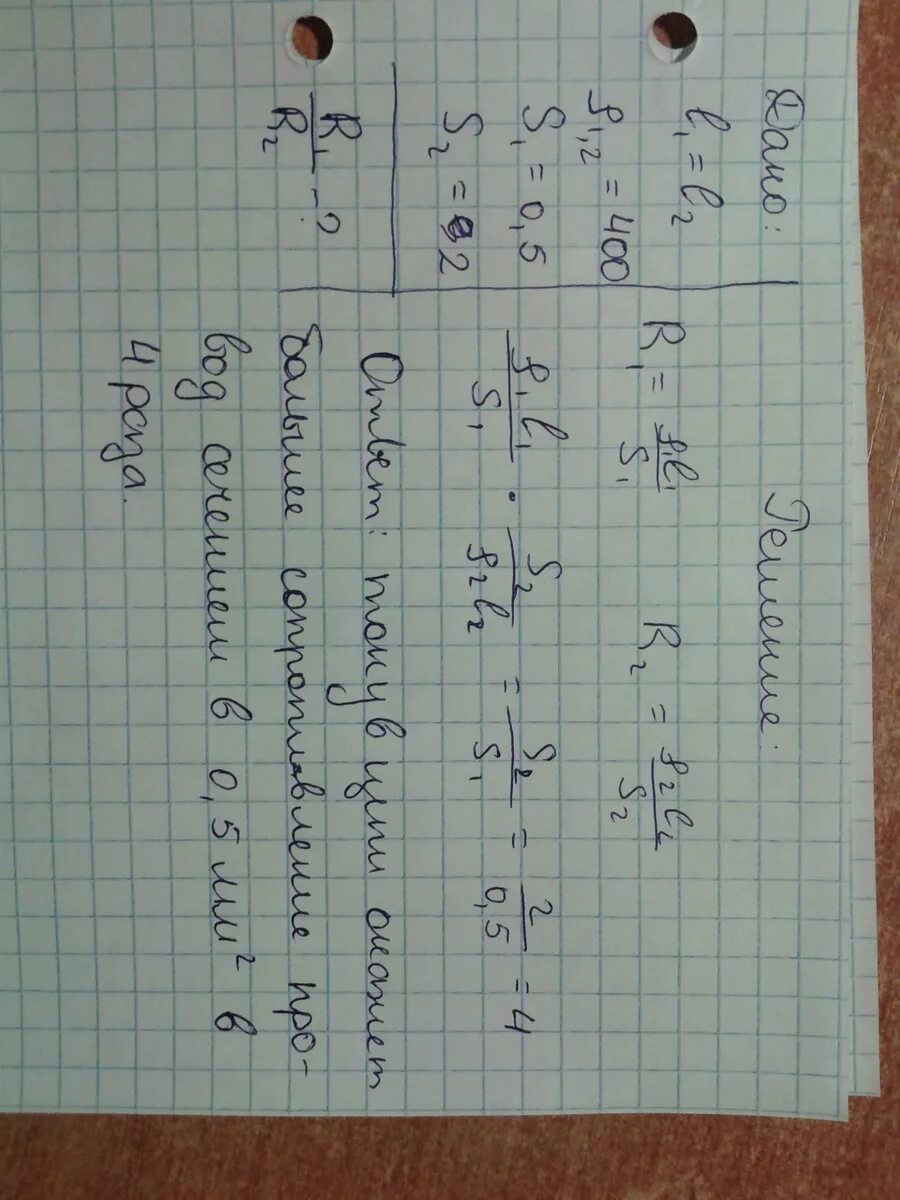 Дано:
l₁ = l₂
ρ₁,₂ = 400
S₁ = 0,5
S₂ = 2
R₁/R₂ - ?
Решение:
R₁ = ρ₁l₁/S₁ R₂ = ρ₂l₂/S₂
ρ₁l₁/S₁ · S₂/ρ₂l₂ = S₂/S₁ = 2/0,5 = 4
Ответ: току в цепи окажет
большее сопротивление про-
вод сечением в 0,5 мм² в
4 раза.